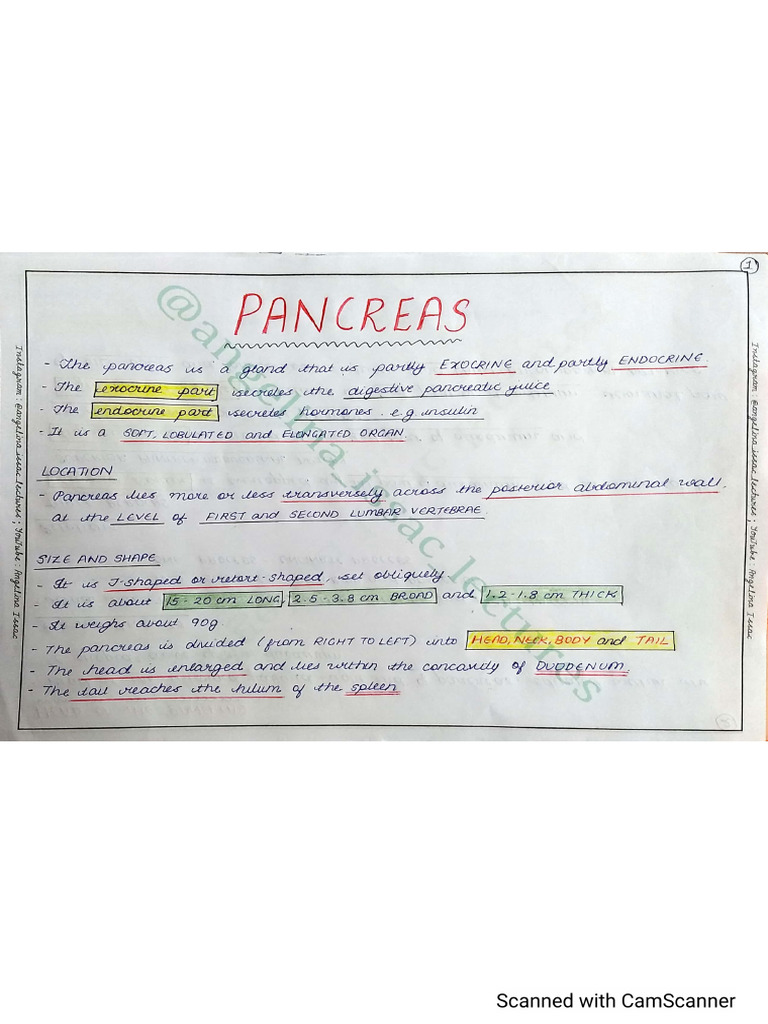 1
PANCREAS
- The pancreas is a gland that is partly EXOCRINE and partly ENDOCRINE.
- The exocrine part secretes the digestive pancreatic juice
- The endocrine part secretes hormones. e.g insulin
- It is a SOFT, LOBULATED and ELONGATED ORGAN.
LOCATION
- Pancreas lies more or less transversely across the posterior abdominal wall,
at the LEVEL of FIRST and SECOND LUMBAR VERTEBRAE.
SIZE AND SHAPE
- It is J-shaped or retort-shaped, set obliquely
- It is about 15-20 cm LONG, 2.5-3.8 cm BROAD and 1.2-1.8 cm THICK
- It weighs about 90g.
- The pancreas is divided (from RIGHT TO LEFT) into HEAD, NECK, BODY and TAIL
- The head is enlarged and lies within the concavity of DUODENUM.
- The tail reaches the hilum of the spleen
@angelina_issac_lectures
Instagram : @angelina_issac_lectures ; YouTube : Angelina Issac
Instagram : @angelina_issac_lectures ; YouTube : Angelina Issac
Scanned with CamScanner